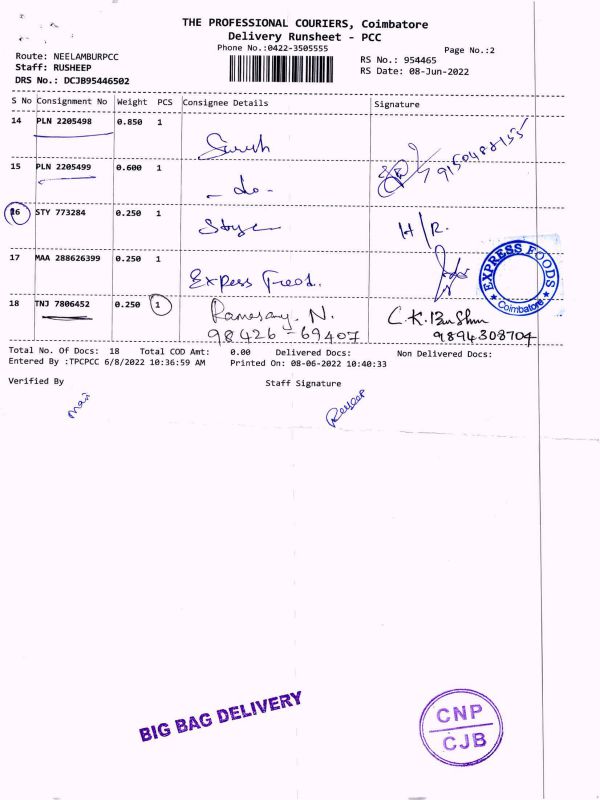 THE PROFESSIONAL COURIERS, Coimbatore
Delivery Runsheet - PCC
Phone No.:0422-3505555
Page No.:2
Route: NEELAMBURPCC
Staff: RUSHEEP
DRS No.: DCJB95446502
RS No.: 954465
RS Date: 08-Jun-2022
S No Consignment No Weight PCS Consignee Details Signature
14 PLN 2205498 0.850 1 Suresh
15 PLN 2205499 0.600 1 - do - 9150488155
16 STY 773284 0.250 1 H/R.
17 MAA 288626399 0.250 1 Express Foods.
EXPRESS FOODS
★ Coimbatore ★
18 TNJ 7806452 0.250 1 Ramesay. N. C.K.
98426-69407 9894308704
Total No. Of Docs: 18 Total COD Amt: 0.00 Delivered Docs: Non Delivered Docs:
Entered By :TPCPCC 6/8/2022 10:36:59 AM Printed On: 08-06-2022 10:40:33
Verified By Staff Signature
BIG BAG DELIVERY
CNP
CJB